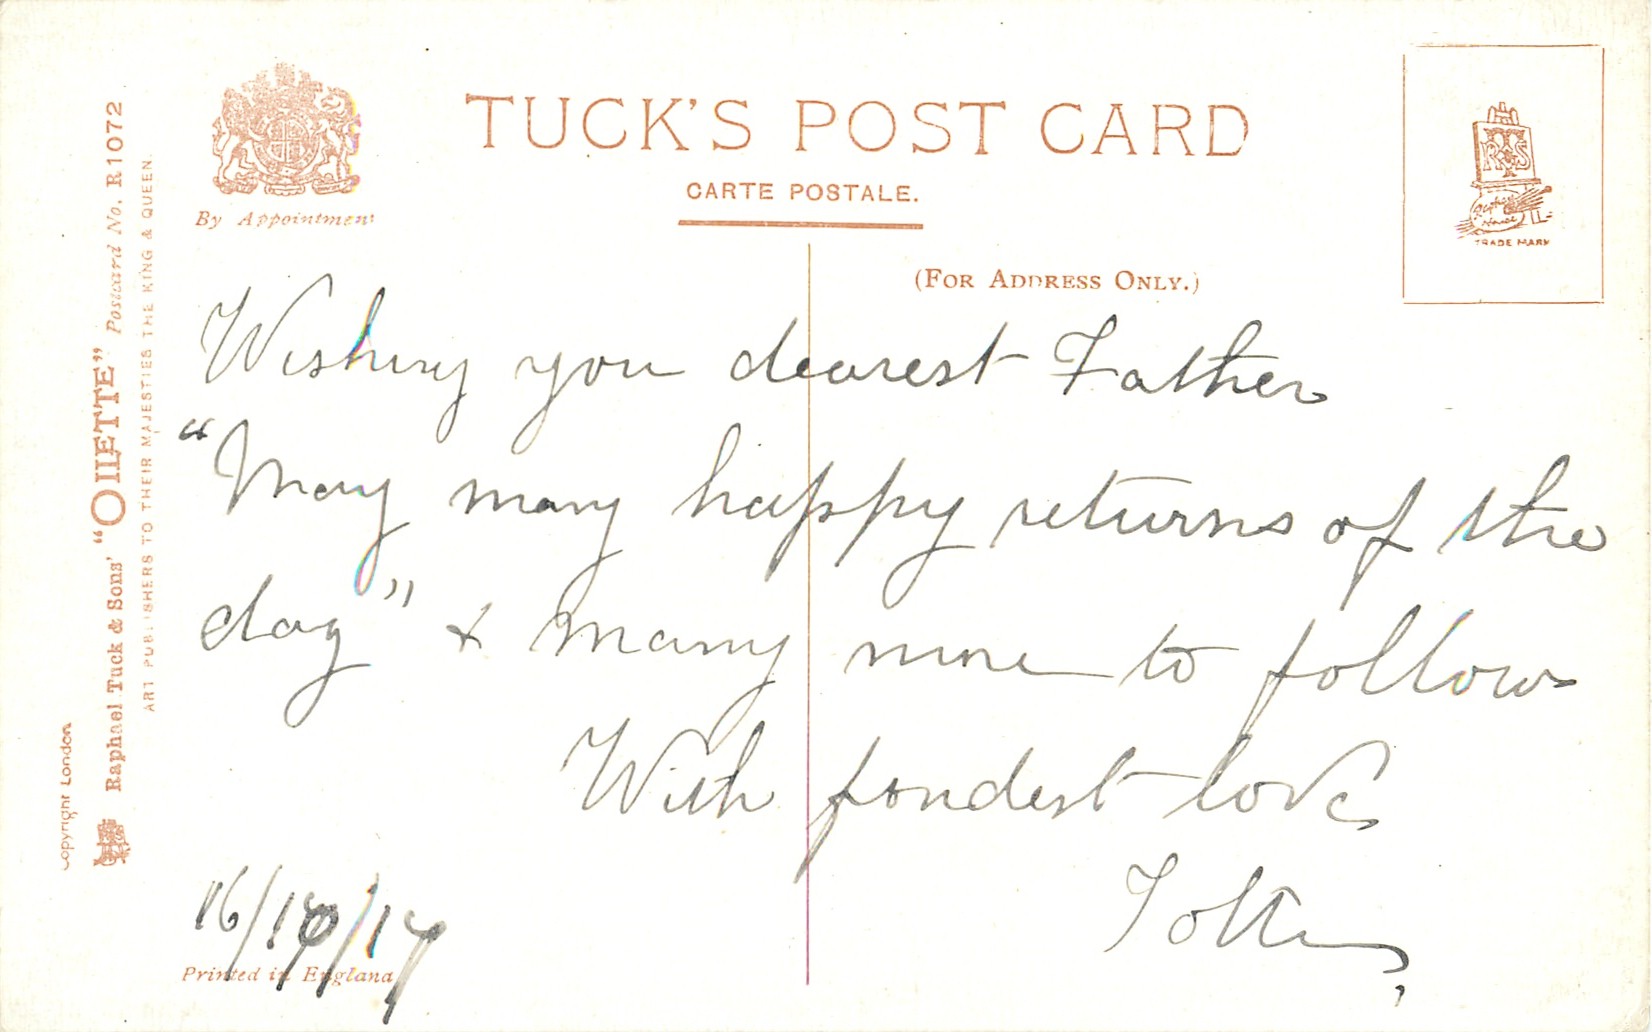 TUCK'S POST CARD
CARTE POSTALE.
By Appointment
(FOR ADDRESS ONLY.)
TRADE MARK
Copyright London
Raphael Tuck & Sons' "OILETTE" Postcard No. R1072
ART PUBLISHERS TO THEIR MAJESTIES THE KING & QUEEN.
Wishing you dearest Father
"Many many happy returns of the
day" & many more to follow
With fondest love
16/10/17
Printed in England